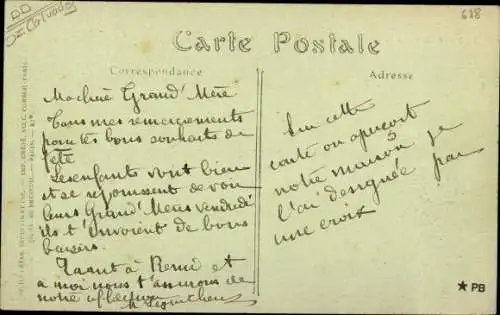 Calvados
628
Carte Postale
Correspondance
Adresse
Ma chère Grand'Mère
Tous mes remerciements
pour tes bons souhaits de
fête
Les enfants vont bien
et se réjouissent de voir
leurs Grand'Mères vendredi
ils t'envoient de bons
baisers.
Quant à Rémi et
à moi nous t'assurons de
notre affection
Sur cette
carte on aperçoit
notre maison je
l'ai désignée par
une croix
★ PB